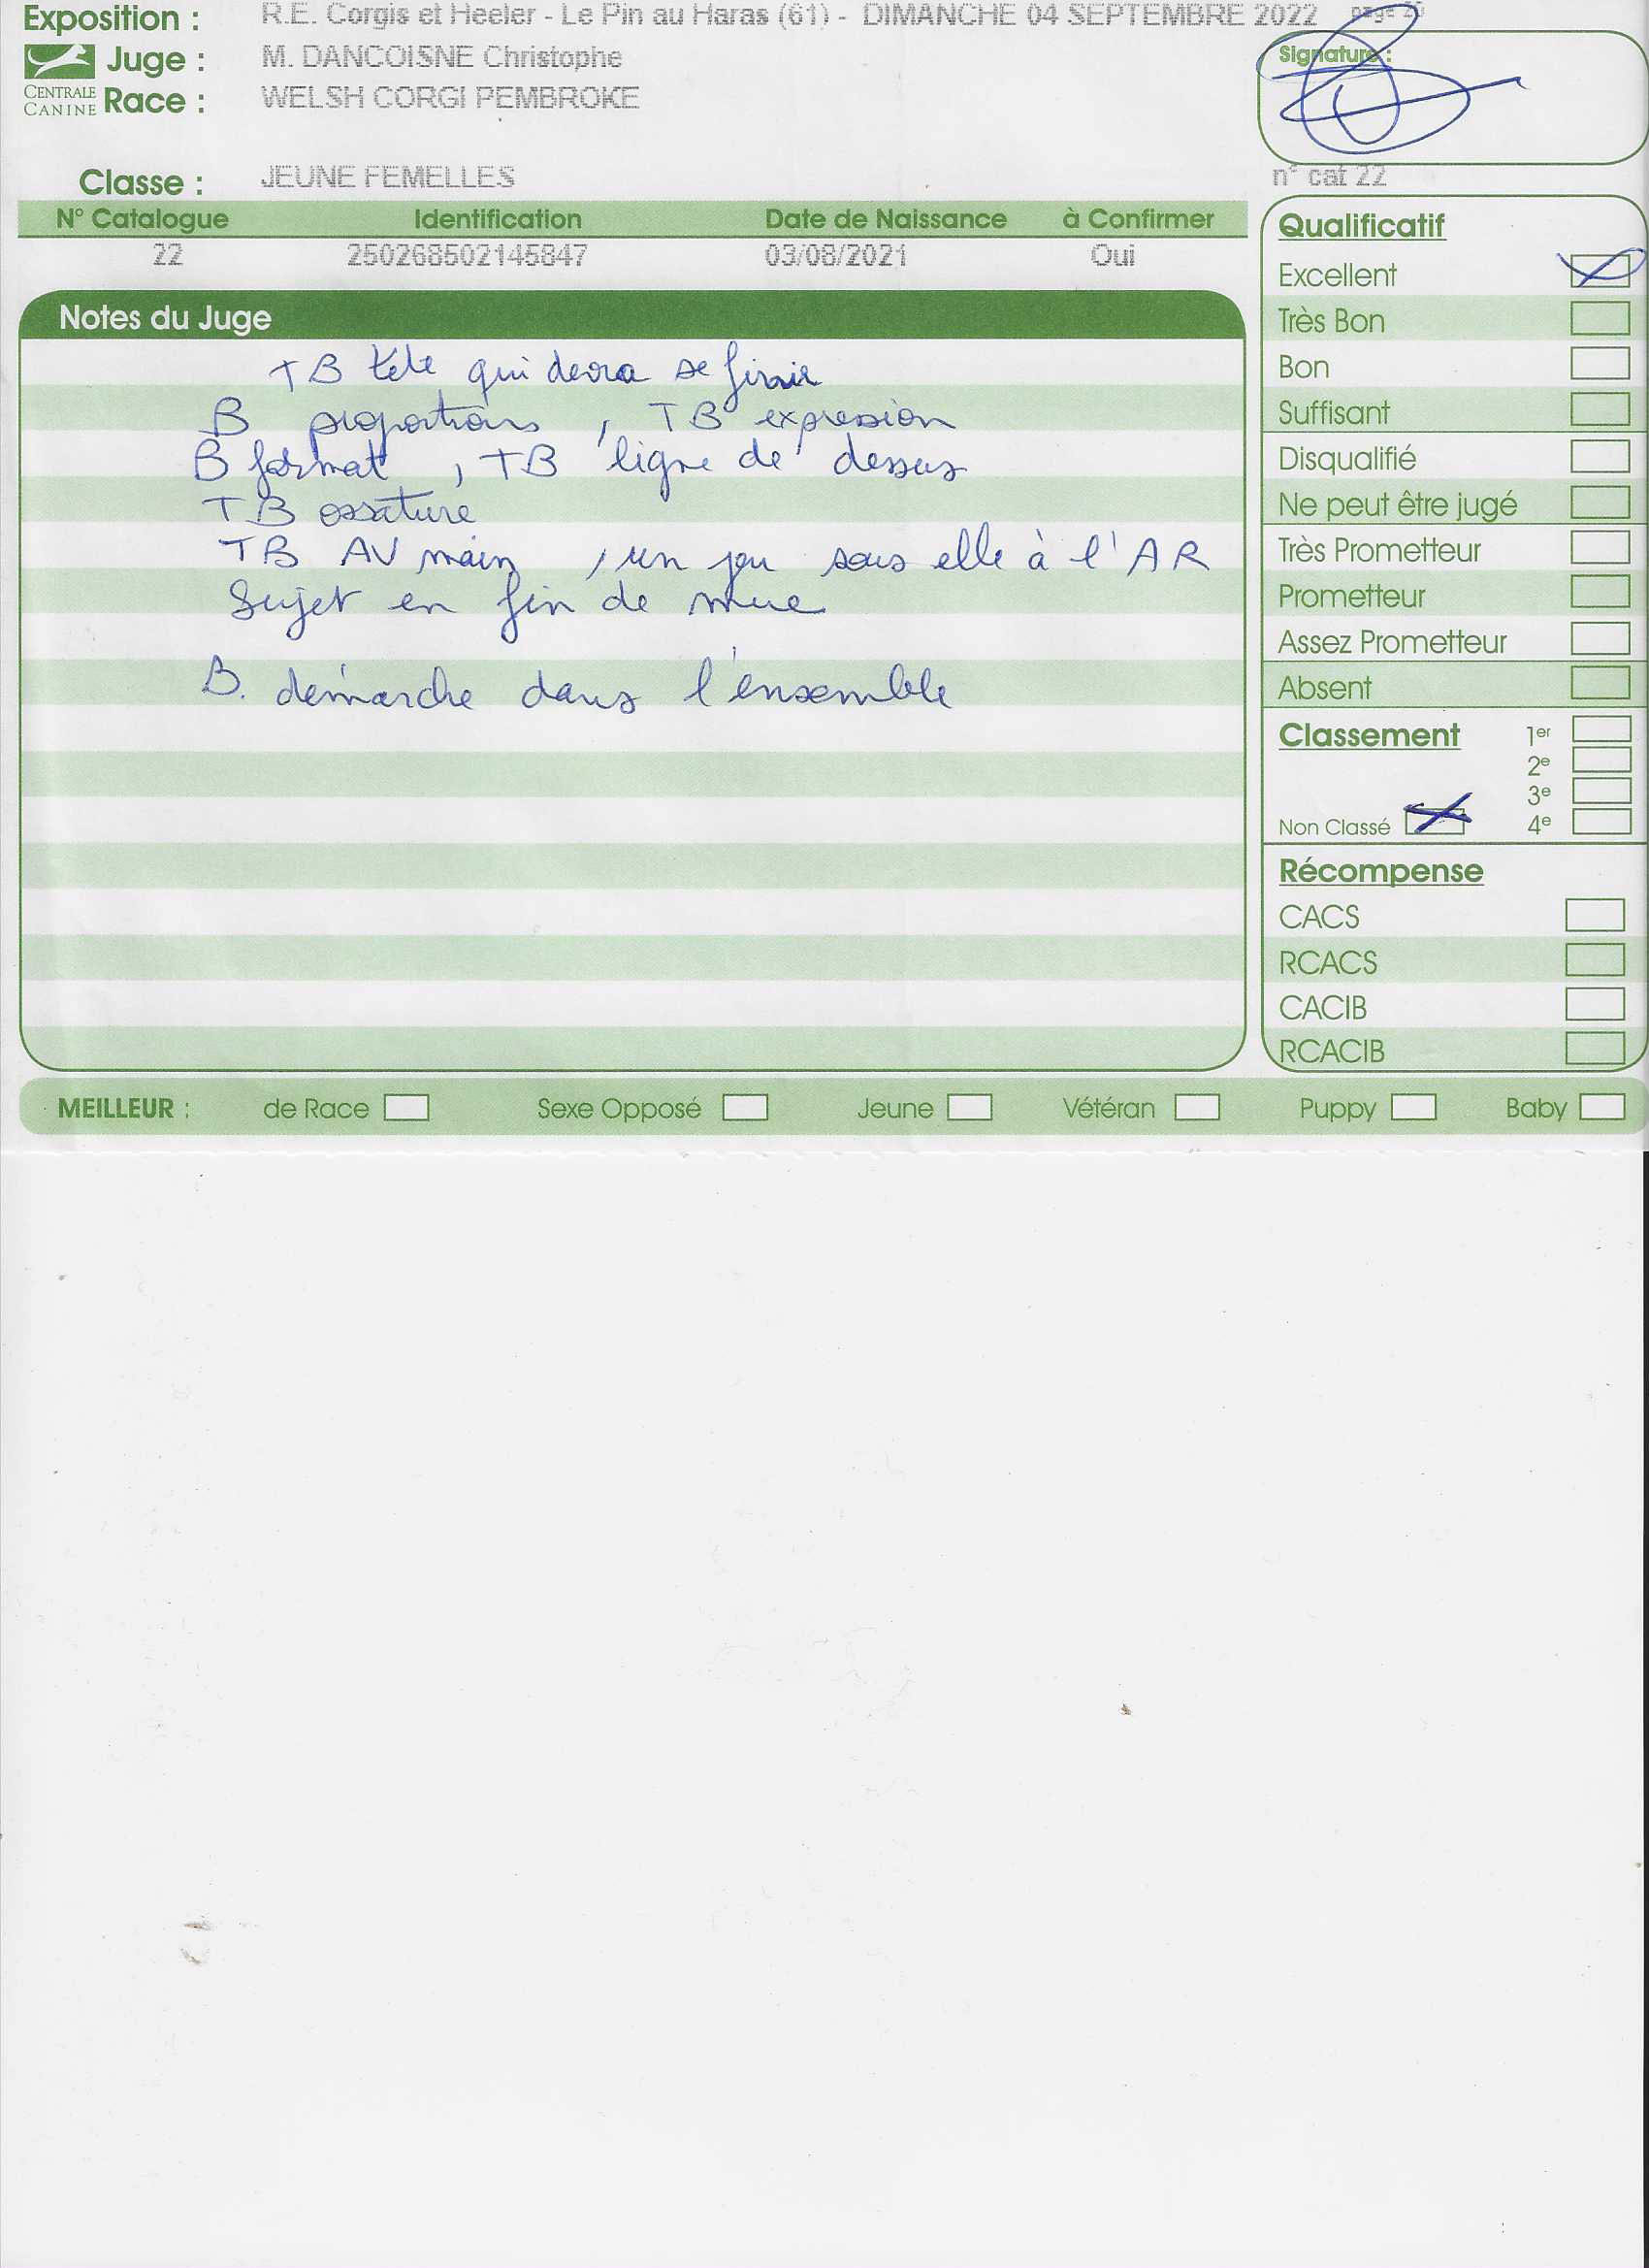 Exposition : R.E. Corgis et Heeler - Le Pin au Haras (61) - DIMANCHE 04 SEPTEMBRE 2022 page
Juge : M. DANCOISNE Christophe
Signature :
CENTRALE CANINE
Race : WELSH CORGI PEMBROKE
Classe : JEUNE FEMELLES
n° cat 22
N° Catalogue Identification Date de Naissance à Confirmer
22 250268502145847 03/08/2021 Oui
Notes du Juge
TB tete qui devra se finir
B proportions , TB expression
B format , TB ligne de dessus
TB ossature
TB AV main , un peu sous elle à l'AR
Sujet en fin de mue
B. démarche dans l'ensemble
Qualificatif
Excellent
Très Bon
Bon
Suffisant
Disqualifié
Ne peut être jugé
Très Prometteur
Prometteur
Assez Prometteur
Absent
Classement 1er
2e
3e
Non Classé 4e
Récompense
CACS
RCACS
CACIB
RCACIB
MEILLEUR : de Race Sexe Opposé Jeune Vétéran Puppy Baby